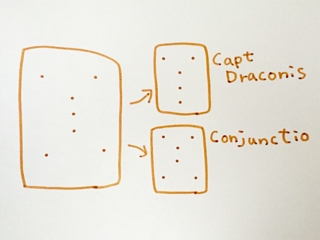 Capt
Draconis
Conjunctio